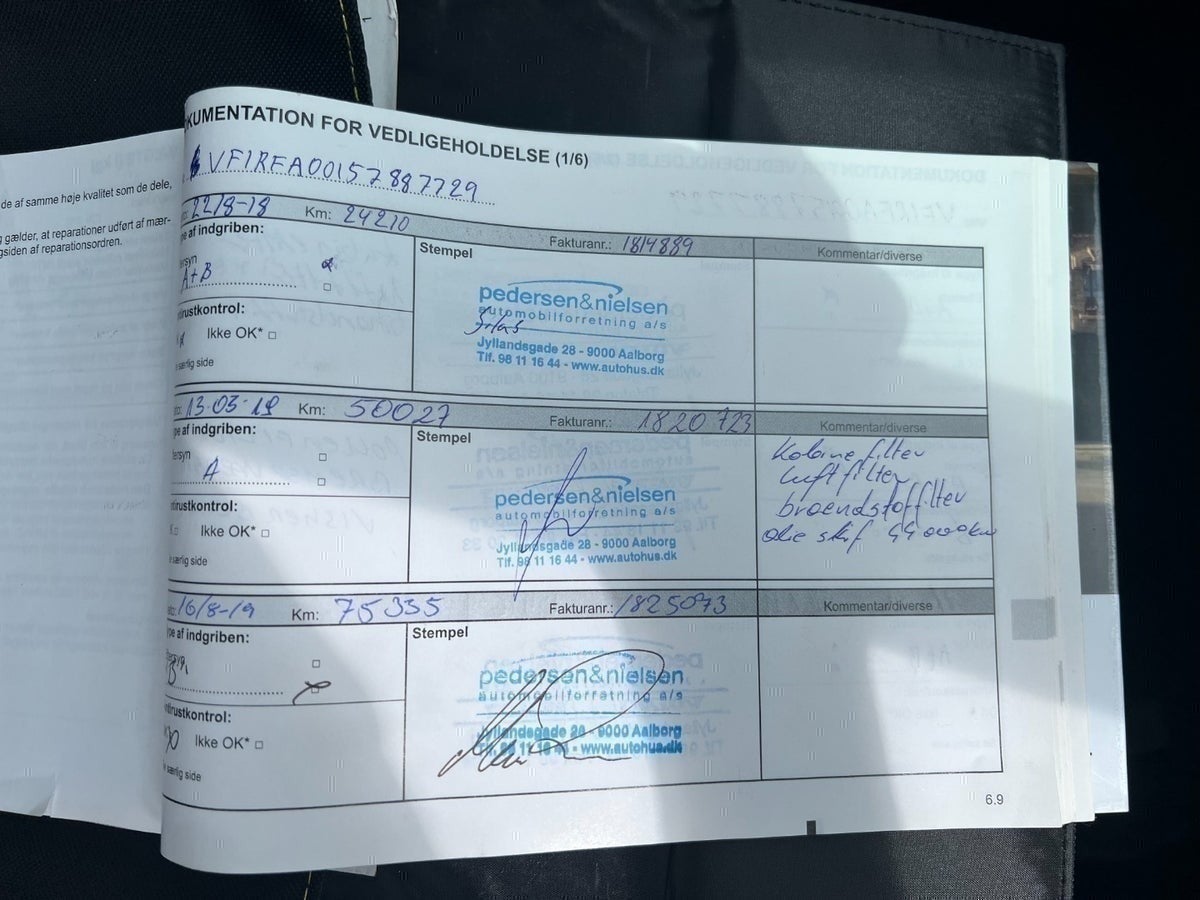 de af samme høje kvalitet som de dele,
g gælder, at reparationer udført af mær-
gsiden af reparationsordren.
KUMENTATION FOR VEDLIGEHOLDELSE (1/6)
VF1RFA00157887729
22/8-18 Km: 24210 Fakturanr.: 1814889 Kommentar/diverse
e af indgriben:
ersyn
A+B
Stempel
pedersen&nielsen
automobilforretning a/s
Jyllandsgade 28 - 9000 Aalborg
Tlf. 98 11 16 44 - www.autohus.dk
ntirustkontrol:
Ikke OK*
særlig side
13-03-19 Km: 50027 Fakturanr.: 1820723 Kommentar/diverse
pe af indgriben:
ersyn
A
Stempel
pedersen&nielsen
automobilforretning a/s
Jyllandsgade 28 - 9000 Aalborg
Tlf. 98 11 16 44 - www.autohus.dk
Kabine filter
luftfilter
braendstoffilter
olie skif 44000km
ntirustkontrol:
Ikke OK*
e særlig side
16/8-19 Km: 75335 Fakturanr.: 1825073 Kommentar/diverse
pe af indgriben:
Stempel
pedersen&nielsen
automobilforretning a/s
Jyllandsgade 28 - 9000 Aalborg
Tlf. 98 11 16 44 - www.autohus.dk
ntirustkontrol:
Ikke OK*
e særlig side
6.9